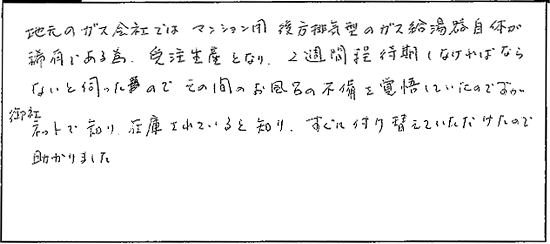 地元のガス会社では マンション用 後方排気型のガス給湯器自体が
稀有である為、受注生産となり、2週間程待期しなければなら
ないと伺ったので その間のお風呂の不備を覚悟していたのですが
御社
ネットで知り 在庫されていると知り、すぐに付け替えていただけたので
助かりました